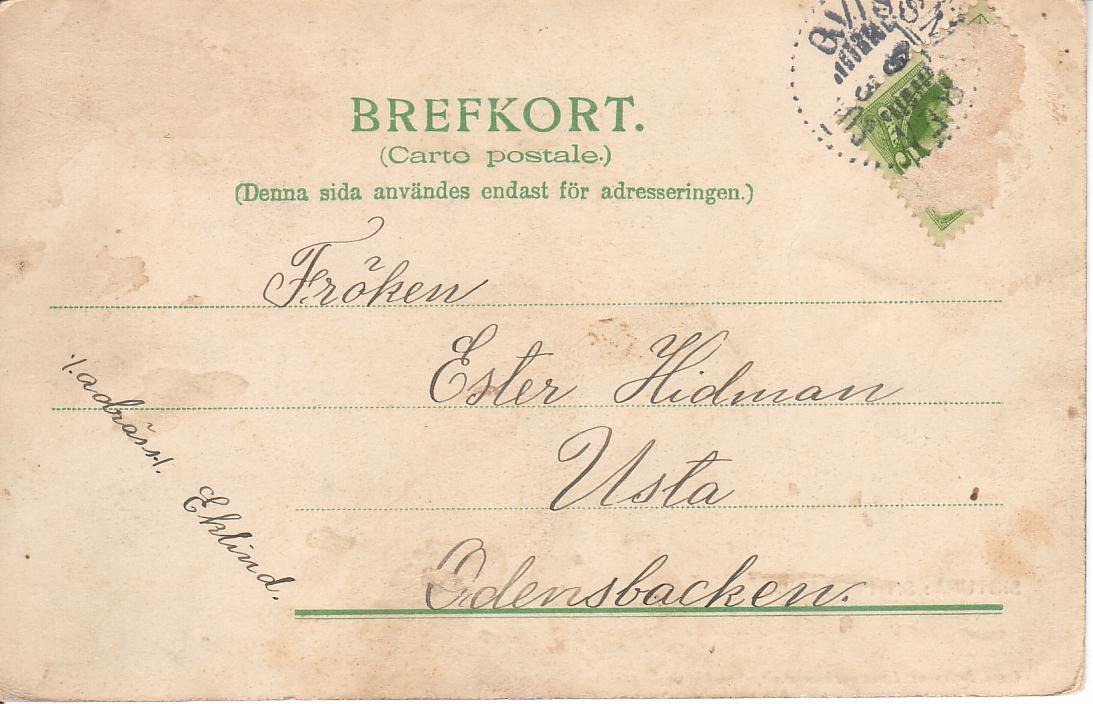 BREFKORT.
(Carte postale.)
(Denna sida användes endast för adresseringen.)
Fröken
Ester Hidman
Usta
Odensbacken.
Eklind.